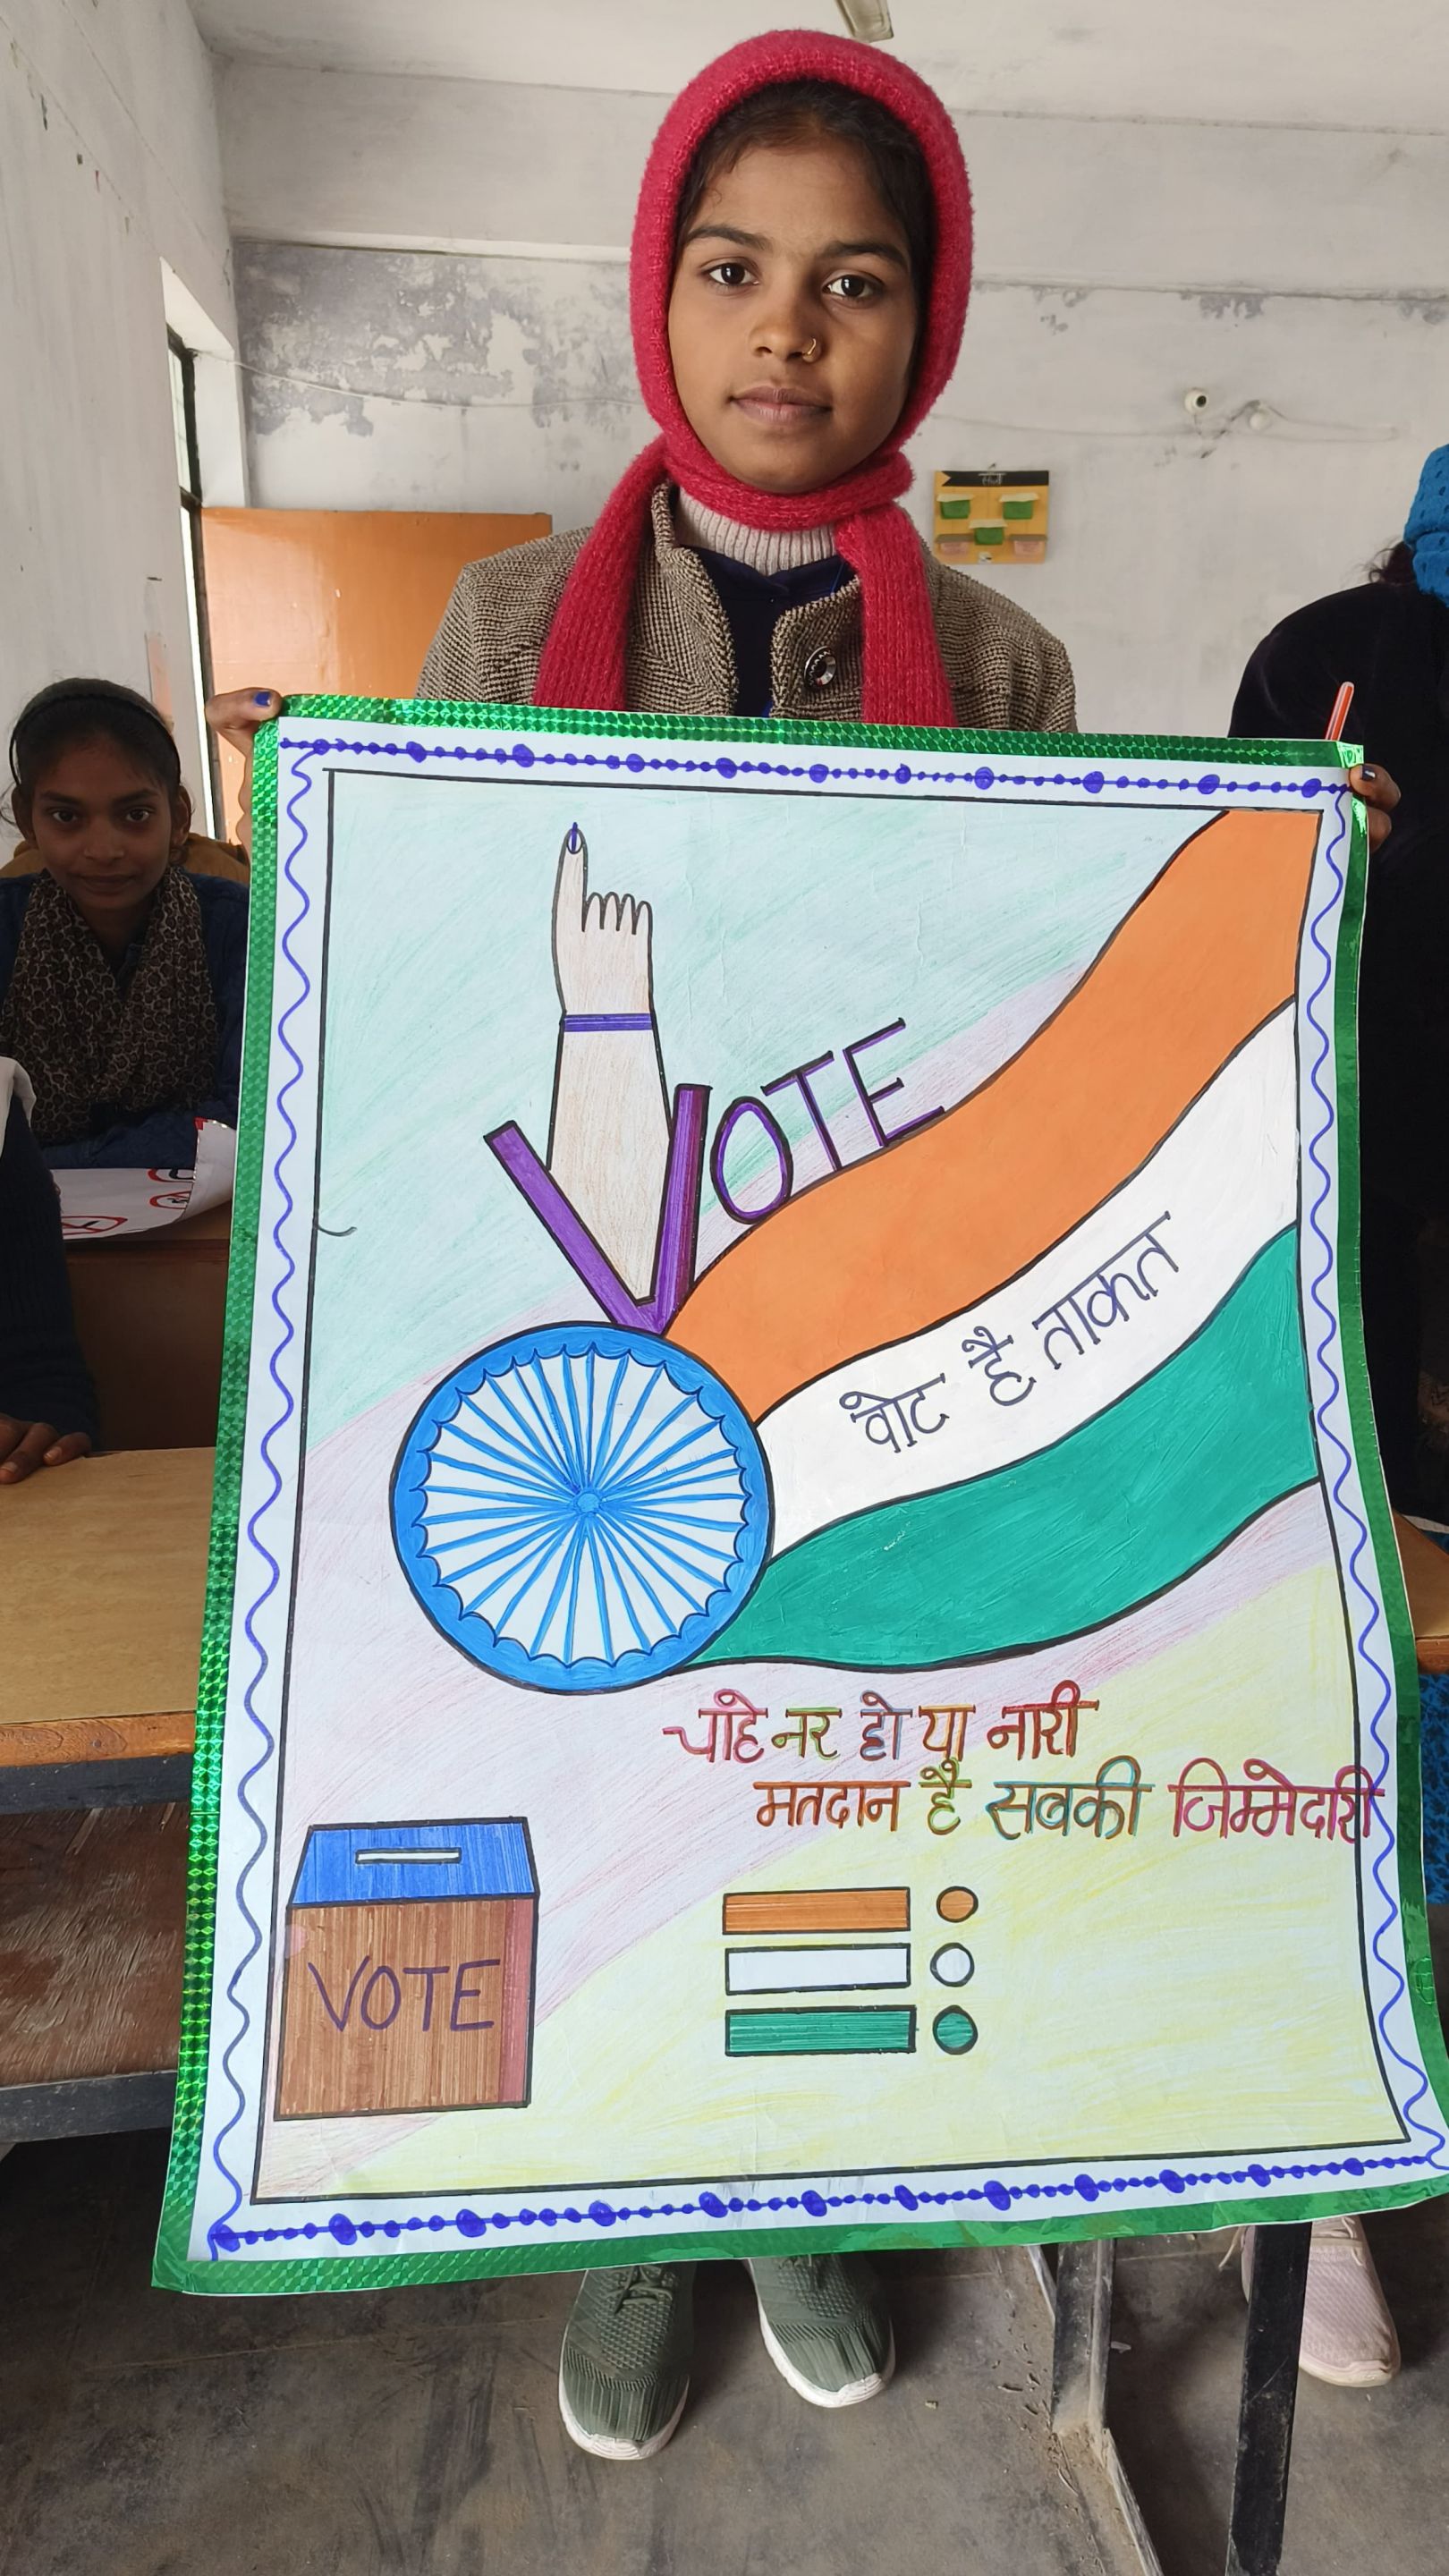 VOTE
वोट है ताकत
चाहे नर हो या नारी
मतदान है सबकी जिम्मेदारी
VOTE